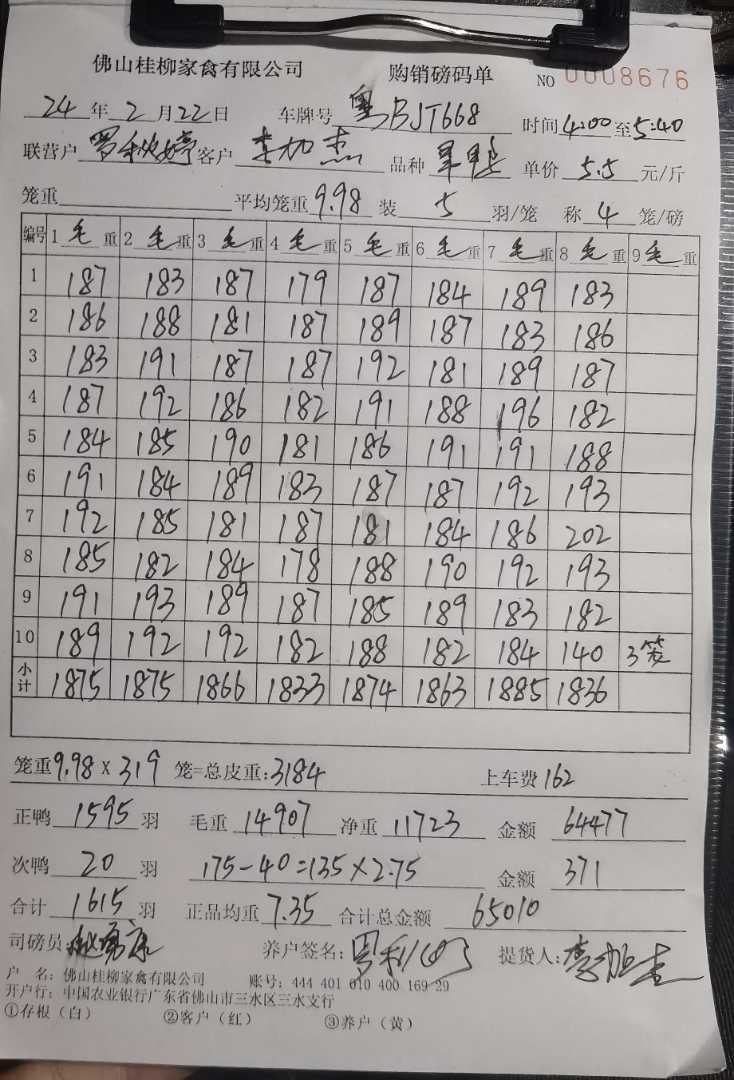 佛山桂柳家禽有限公司 购销磅码单 NO 0008676
24 年 2 月 22 日 车牌号 粤BJT668 时间 4:00 至 5:40
联营户 罗秋婷 客户 李加杰 品种 单价 5.5 元/斤
笼重 平均笼重 9.98 装 5 羽/笼 称 4 笼/磅
编号 1 毛 重 2 毛 重 3 毛 重 4 毛 重 5 毛 重 6 毛 重 7 毛 重 8 毛 重 9 毛 重
1 187 183 187 179 187 184 189 183
2 186 188 181 187 189 187 183 186
3 183 191 187 187 192 181 189 187
4 187 192 186 182 191 188 196 182
5 184 185 190 181 186 191 191 188
6 191 184 189 183 187 187 192 193
7 192 185 181 187 181 184 186 202
8 185 182 184 178 188 190 192 193
9 191 193 189 187 185 189 183 182
10 189 192 192 182 188 182 184 140 3笼
小计 1875 1875 1866 1833 1874 1863 1885 1836
笼重 9.98 x 319 笼=总皮重: 3184 上车费 162
正鸭 1595 羽 毛重 14907 净重 11723 金额 64477
次鸭 20 羽 175-40=135×2.75 金额 371
合计 1615 羽 正品均重 7.35 合计总金额 65010
司磅员: 养户签名: 提货人:
户 名: 佛山桂柳家禽有限公司 账号: 444 401 010 400 169 29
开户行: 中国农业银行广东省佛山市三水区三水支行
①存根（白） ②客户（红） ③养户（黄）